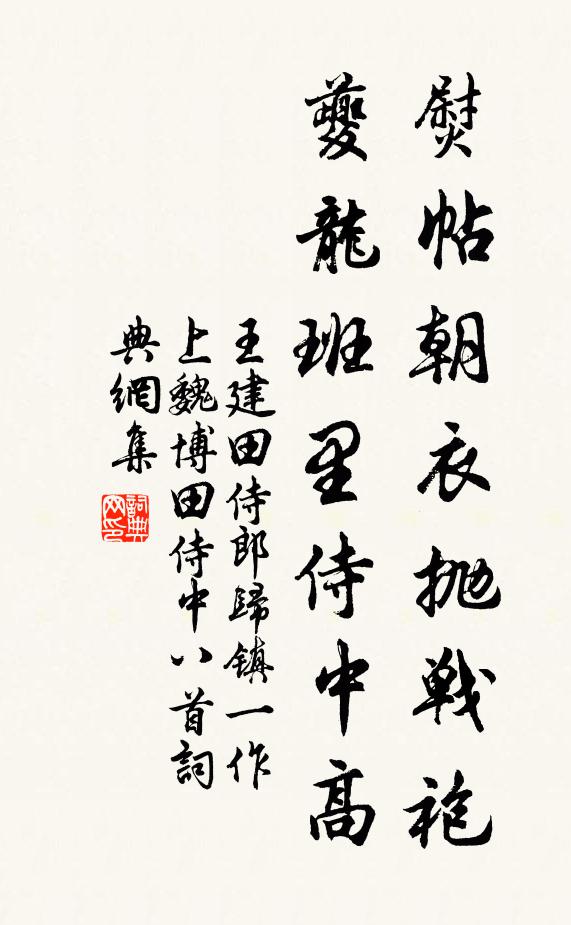 熨帖朝衣抛戰袍
夔龍班里侍中高
王建田侍郎歸鎮一作
上魏博田侍中八首詞
典網集
詞典
网印